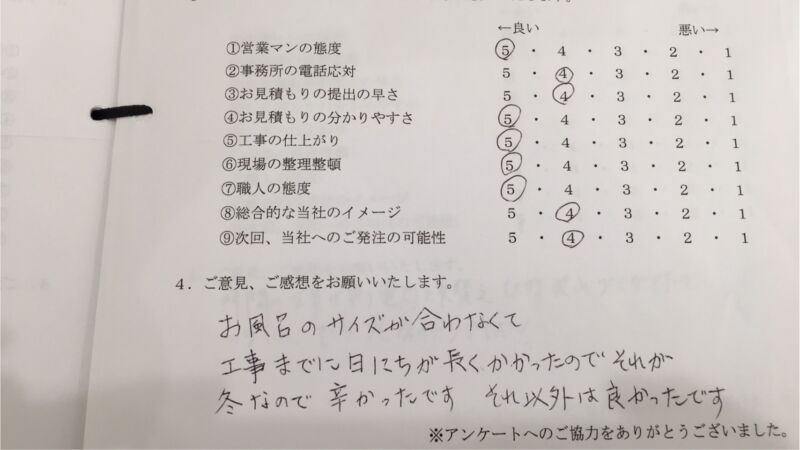 ←良い 悪い→
①営業マンの態度 5 ・ 4 ・ 3 ・ 2 ・ 1
②事務所の電話応対 5 ・ 4 ・ 3 ・ 2 ・ 1
③お見積もりの提出の早さ 5 ・ 4 ・ 3 ・ 2 ・ 1
④お見積もりの分かりやすさ 5 ・ 4 ・ 3 ・ 2 ・ 1
⑤工事の仕上がり 5 ・ 4 ・ 3 ・ 2 ・ 1
⑥現場の整理整頓 5 ・ 4 ・ 3 ・ 2 ・ 1
⑦職人の態度 5 ・ 4 ・ 3 ・ 2 ・ 1
⑧総合的な当社のイメージ 5 ・ 4 ・ 3 ・ 2 ・ 1
⑨次回、当社へのご発注の可能性 5 ・ 4 ・ 3 ・ 2 ・ 1
4．ご意見、ご感想をお願いいたします。
お風呂のサイズが合わなくて
工事までに日にちが長くかかったのでそれが
冬なので辛かったです それ以外は良かったです
※アンケートへのご協力をありがとうございました。